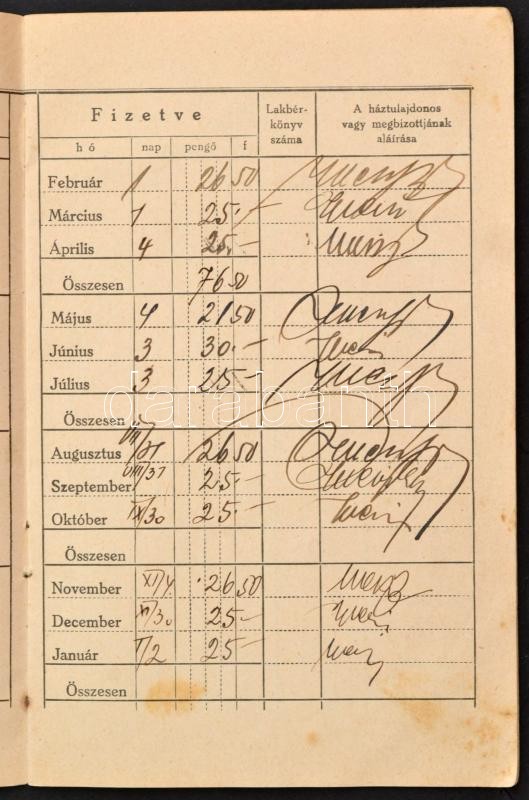 Fizetve
Lakbér-
könyv
száma
A háztulajdonos
vagy megbizottjának
aláírása
hó nap pengő f
Február 1 26 50
Március 1 25.-
Április 4 25.-
Összesen 76 50
Május 4 21 50
Június 3 30.-
Július 3 25-
Összesen
Augusztus VIII/1 26 50
Szeptember VIII/31 25.-
Október IX/30 25.-
Összesen
November XI/4. 26 50
December XI/30 25-
Január I/2 25-
Összesen
darabanth